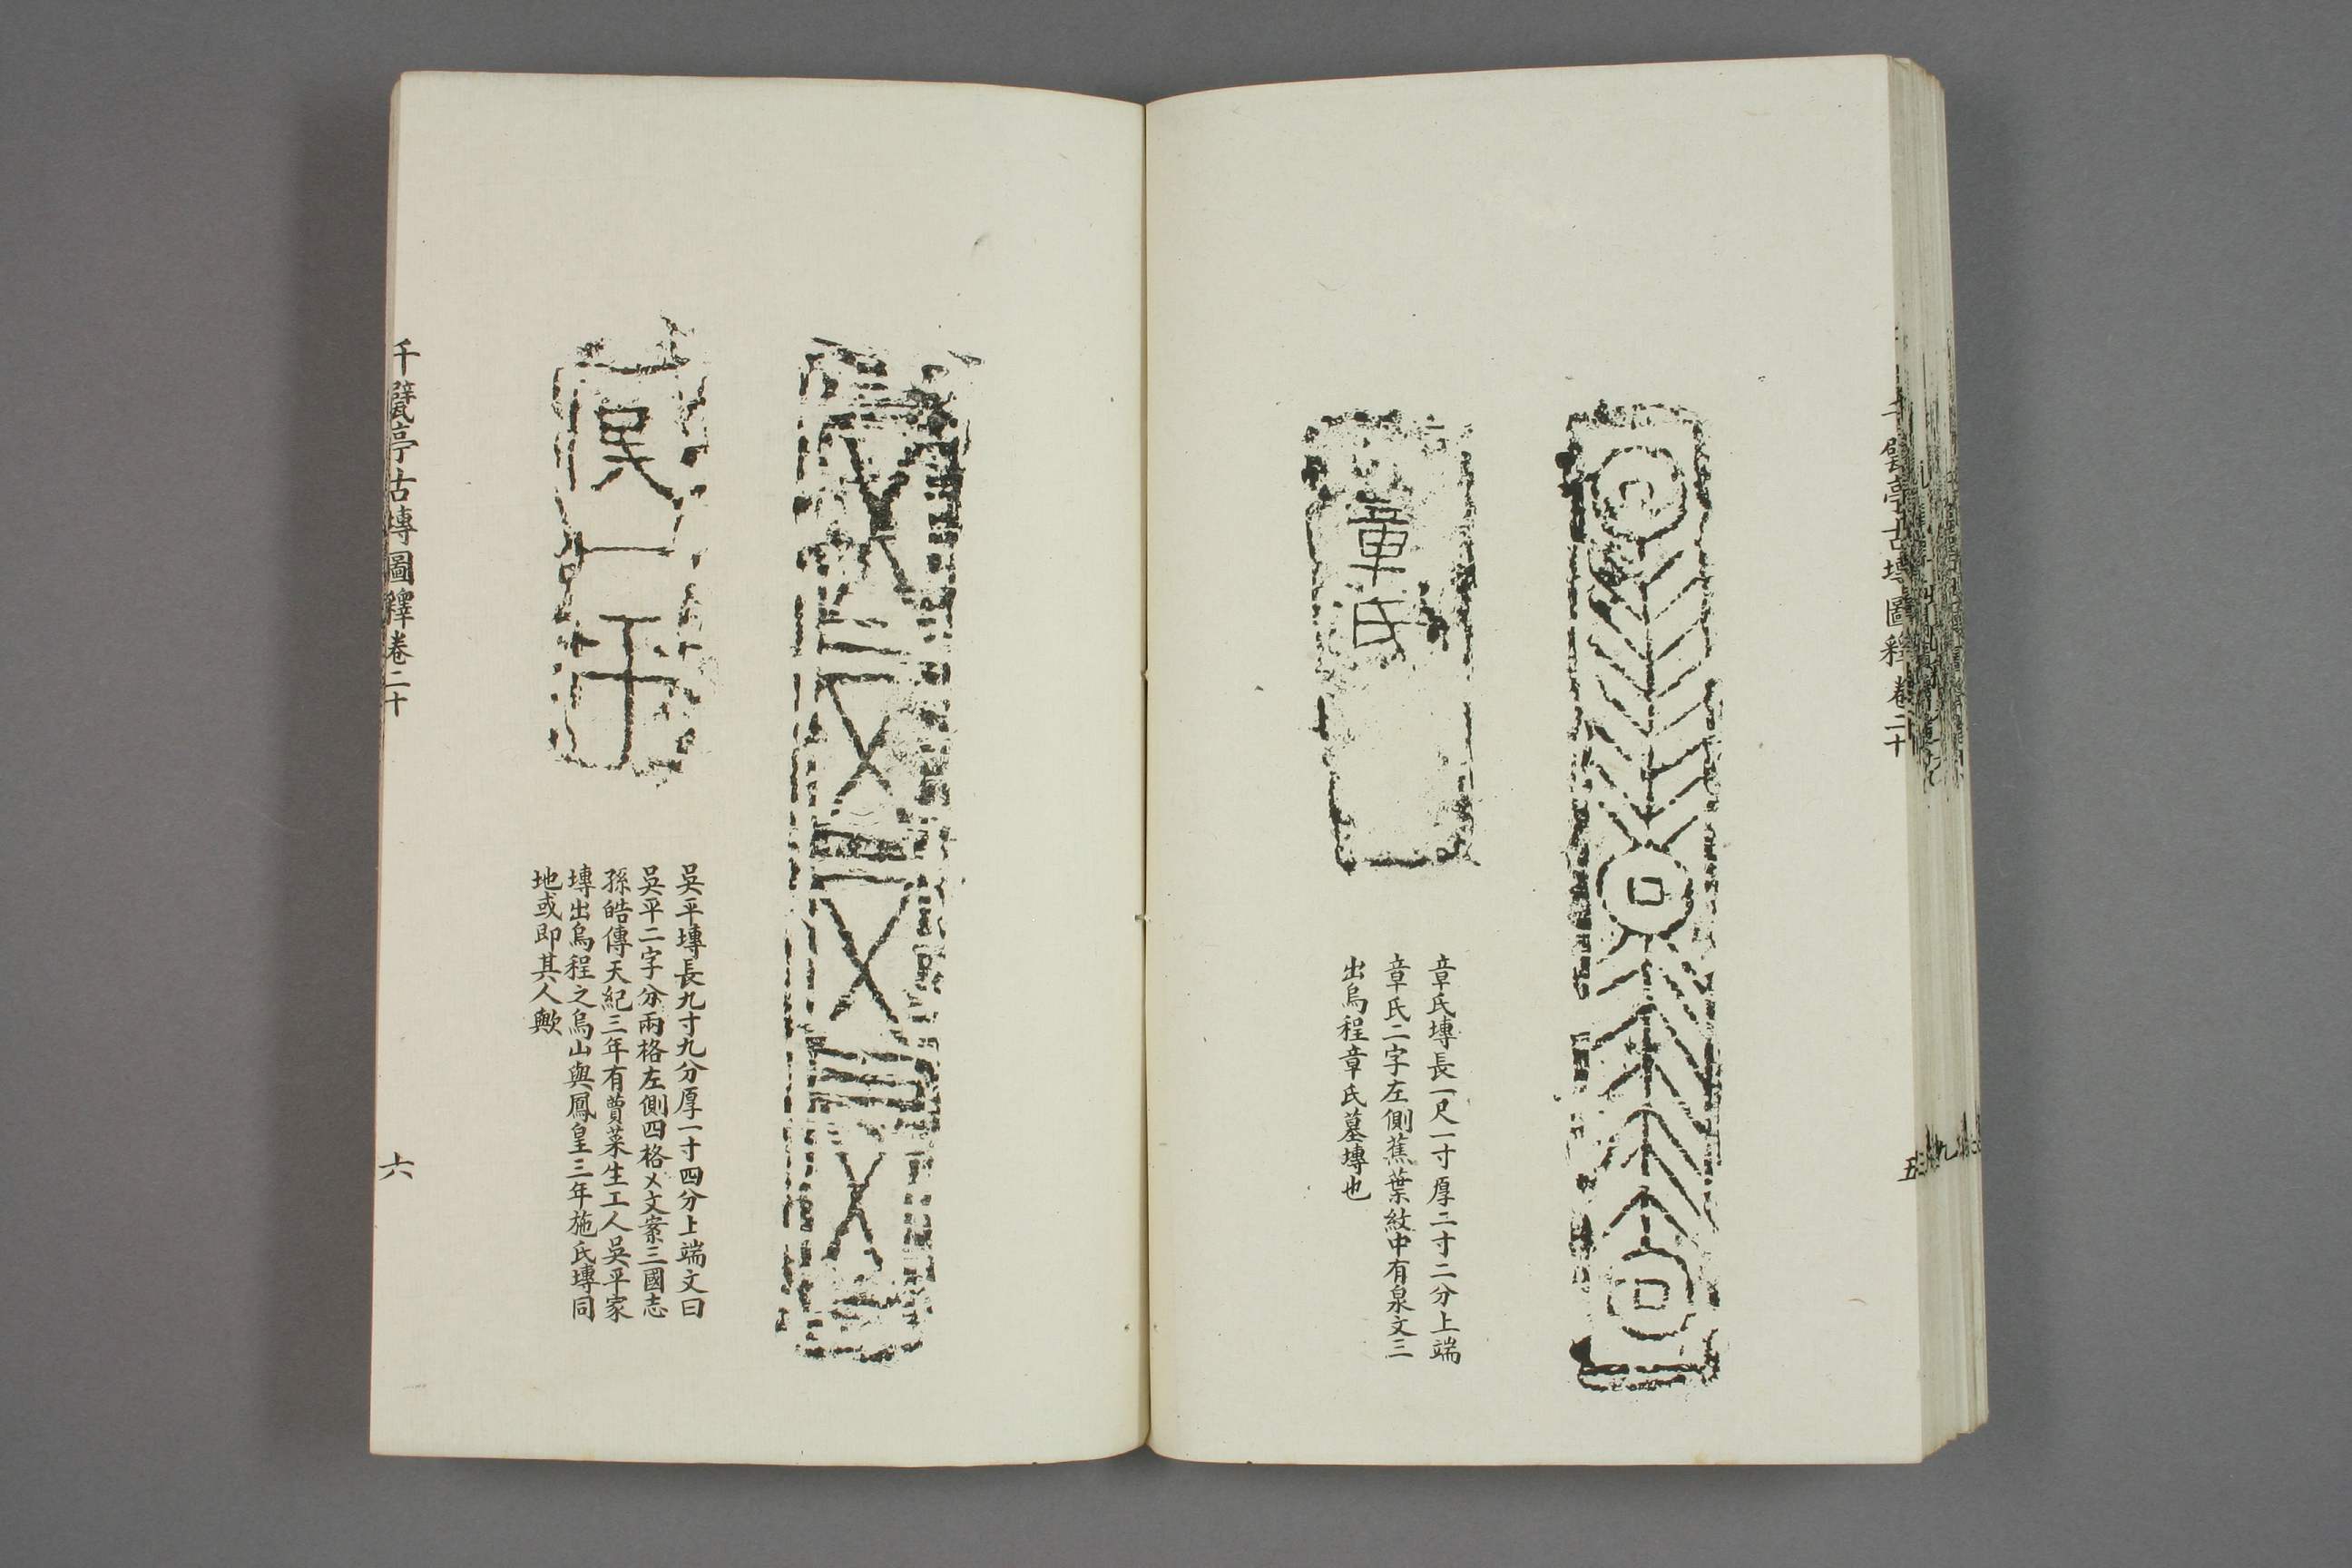 千甓亭古塼圖釋卷二十
五
章氏
章氏塼長一尺一寸厚二寸二分上端
章氏二字左側蕉葉紋中有泉文三
出烏程章氏墓塼也
吳平
吳平塼長九寸九分厚一寸四分上端文曰
吳平二字分兩格左側四格㐅文案三國志
孫皓傳天紀三年有蕒菜生工人吳平家
塼出烏程之烏山與鳳皇三年施氏塼同
地或即其人歟
千甓亭古塼圖釋卷二十
六